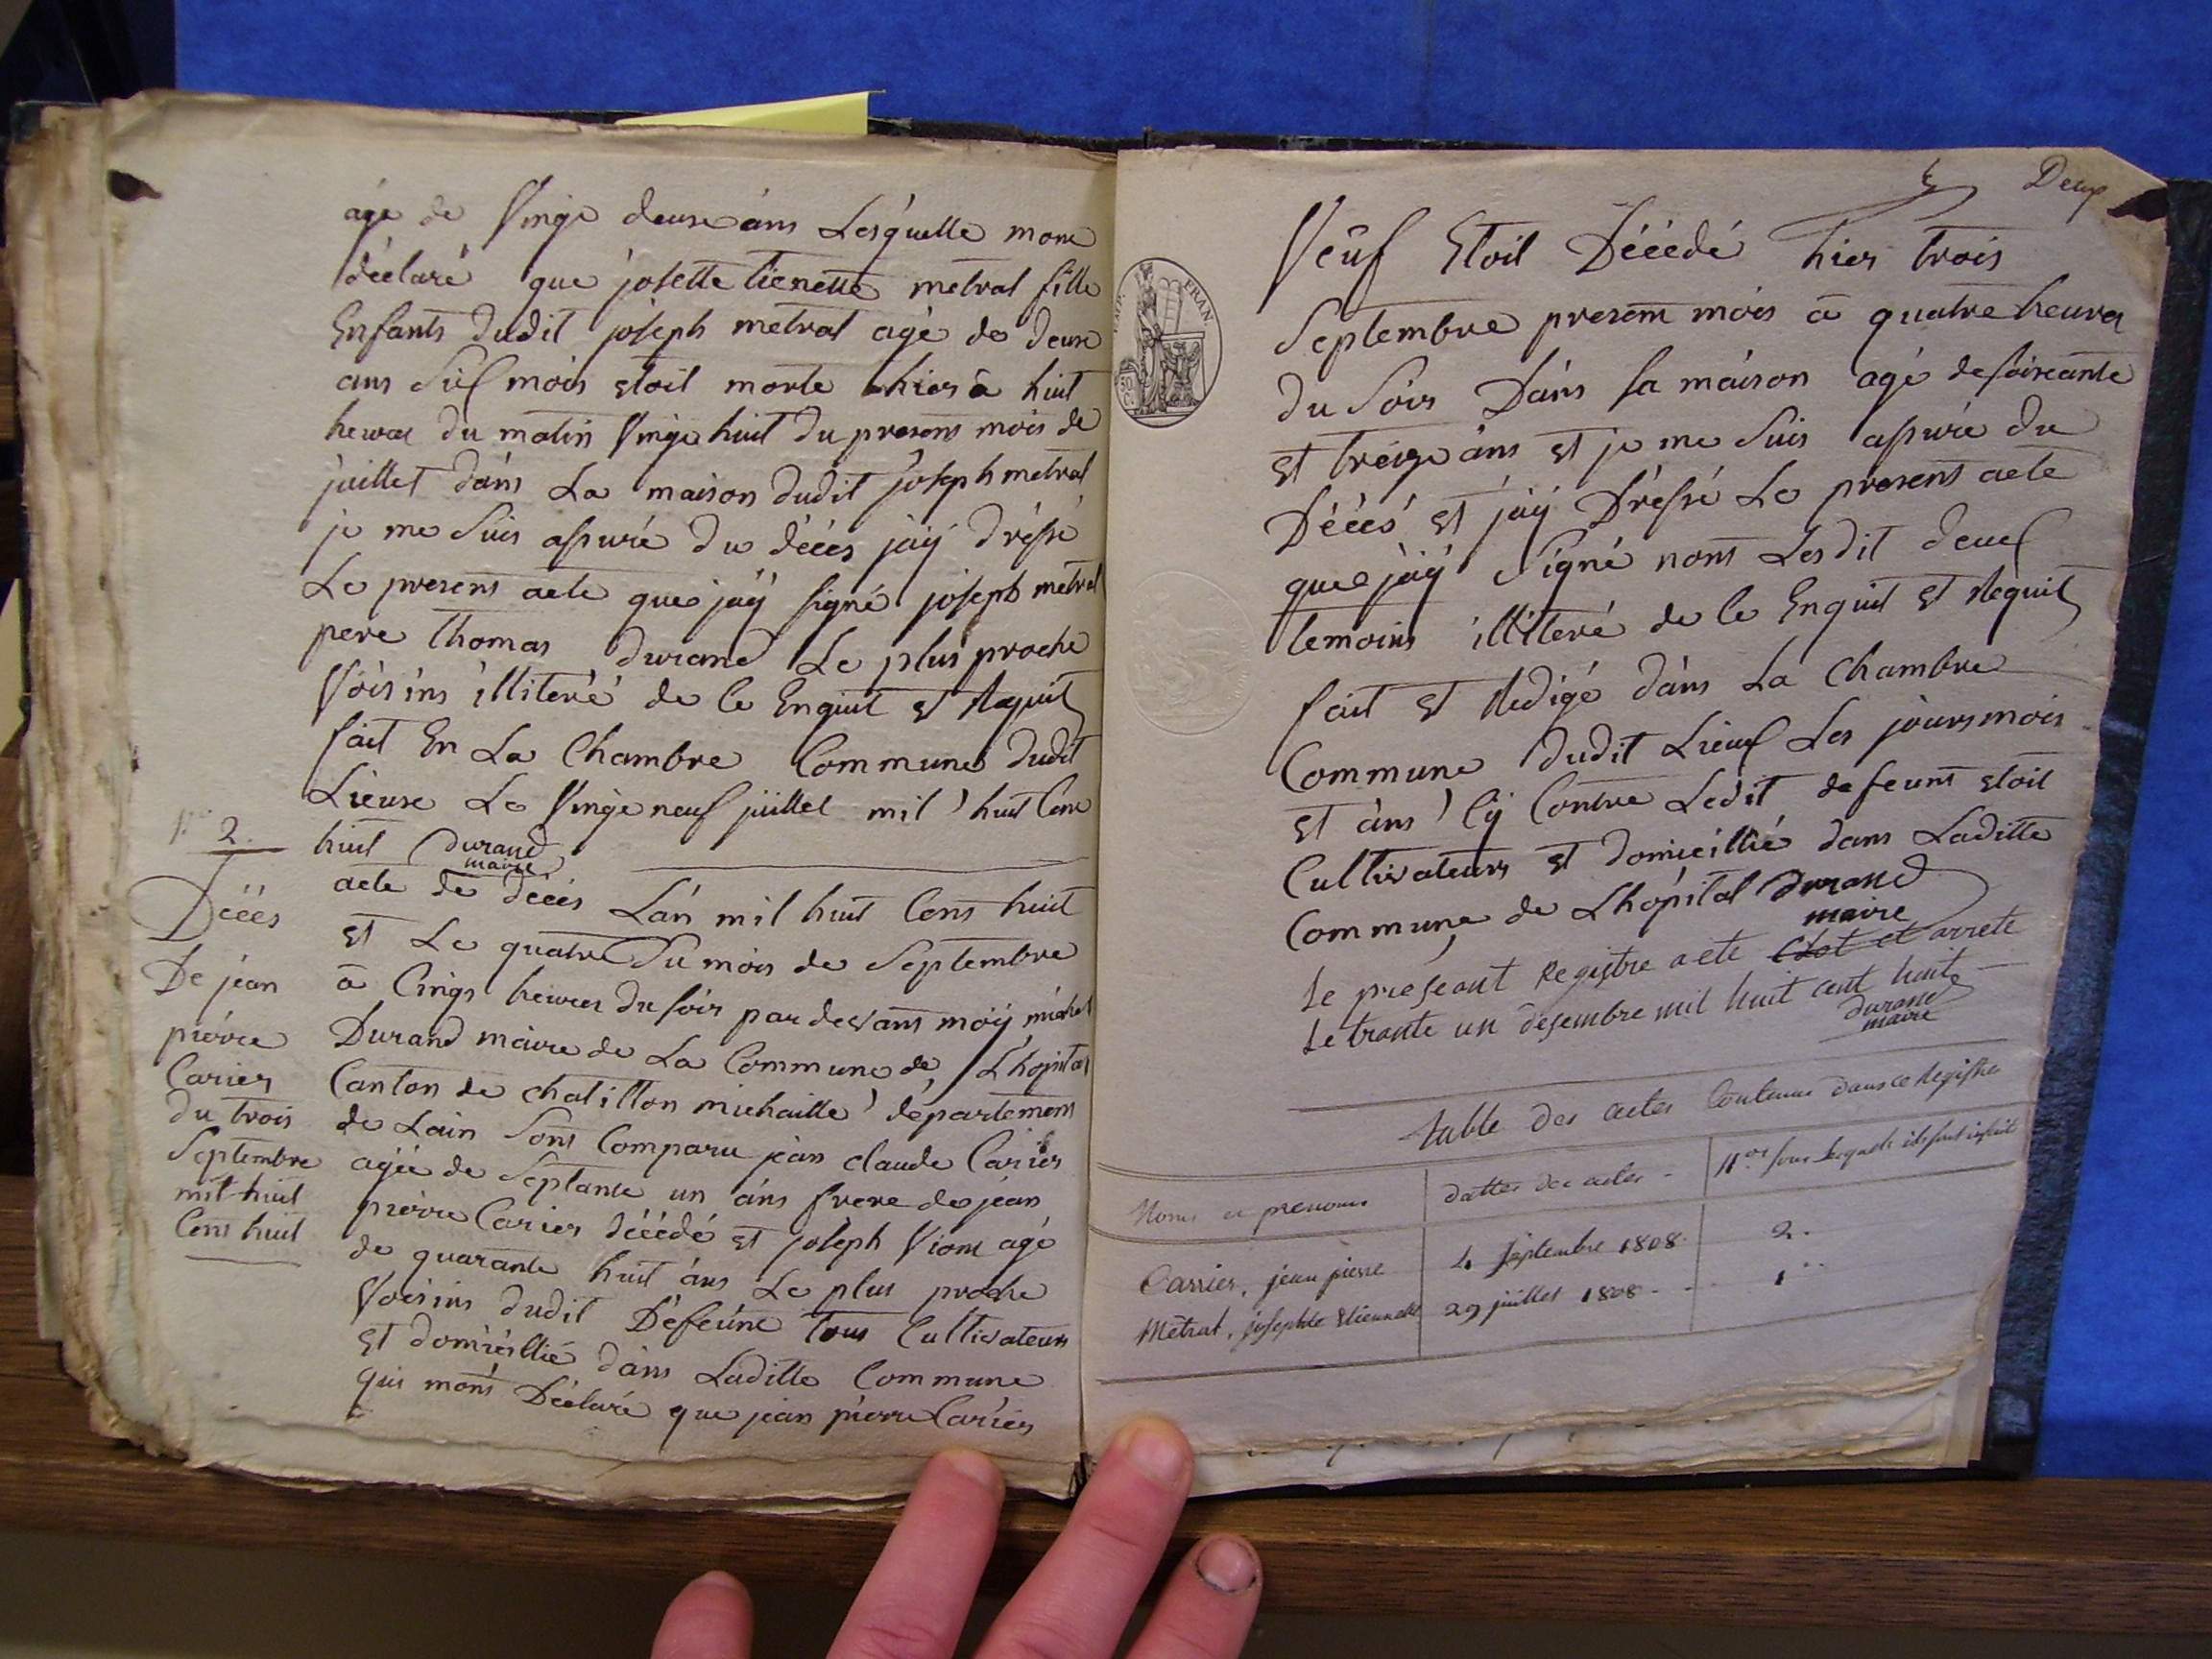 agé de Vinge deuse áns Lesquelle mone
déclaré que josette tienette metral fille
Enfants dudit joseph metral agé de deuse
ans Sil mois Etoit morte hier à huit
heures du matin Vinge huit du presens mois de
juillet dáns La maison dudit joseph metral
je me Suis assuré du décés jáÿ dréssé
Le presens acte que jáÿ signé joseph metral
pere thomas durand Le plus proche
Vóisins illiteré de le Enquit et Requit
fait En La Chambre Commune dudit
Lieuse Le Vinge neuf juillet mil huit Cene
huit durand
maire
N° 2.
Décés
De jean
piérre
Carier
du trois
Septembre
mil huit
Cens huit
acte de décés Lán mil huit Cens huit
et Le quatre du mois de Septembre
à Cinqs heures du sóir par devans móÿ michel
Durand maire de La Commune de L'hopital
Canton de chatillon michaille départemens
de Lain Sons Comparu jean claude Carier
agée de Septante un áns frere de jean
piérre Carier décédé et joseph Vione agé
de quarante huit áns Le plus proche
Voisins dudit Défeúne tous Cultivateurs
et domicillié dáns Laditte Commune
qui mons Déclaré que jean piérre Cariér
Deux
Veúf Etoit Décédé hier trois
Septembre presens móis à quatre heures
du Sóir Dáns sa máison agé de sóixcante
et tréize áns et je me Suis assuré du
Décés et jáÿ Dréssé Le presens acte
que jáÿ Signé nons Lesdit deux
temoins illiteré de le Enquit et Requit
fait et Redigé dáns La Chambre
Commune dudit Lieux Les jóurs mois
et áns Cÿ Contre Ledit defeuns etoit
Cultivateurs et domicillié dans Laditte
Commune de Lhópital durand
maire
Le preseant Registre a ete clot et arrete
Le trante un desembre mil huit cent huit
durand
maire
table des actes Contenus dans ce Registre
Noms et prenoms dattes des actes - N.os sous lesquels ils sont inscrits
Carrier, jean pierre 4 septembre 1808. 2.
Metral, josephte Etiennette 29 juillet 1808. - - 1
EMP. FRAN.